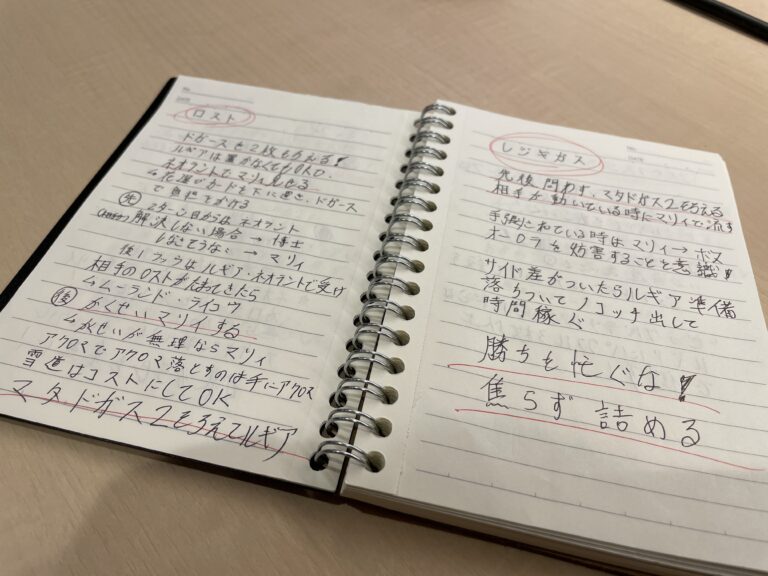 No.
Date
ロスト
ドガースを2枚そろえる!
ルギアは置かなくてもOK。
ネオラントでマリィさせる
で負担をかける
先
2ターン目からはネオラント
解決しない場合 → 博士
しなさそうなら → マリィ
後1 フッコはルギア・ネオラントで受け
相手のロストがたまってきたら
↳ ムーランド・ライコウ
後 かくせいマリィする
↳ かくせいが無理ならマリィ
アクロマでアクロマ落とものは手にアクロス
雪道はコストにしてOK
マタドガス2そろえてルギア
No.
Date
レジギガス
先後問わず、マタドガス2そろえる
相手が動いている時にマリィで流す
手張りされている時はマリィ→ボス
オーロラを妨害することを意識!
サイド差がついたらルギア準備
落ちついてノコッチ出して
時間稼ぐ
勝ちを忙ぐな!
焦らず 詰める